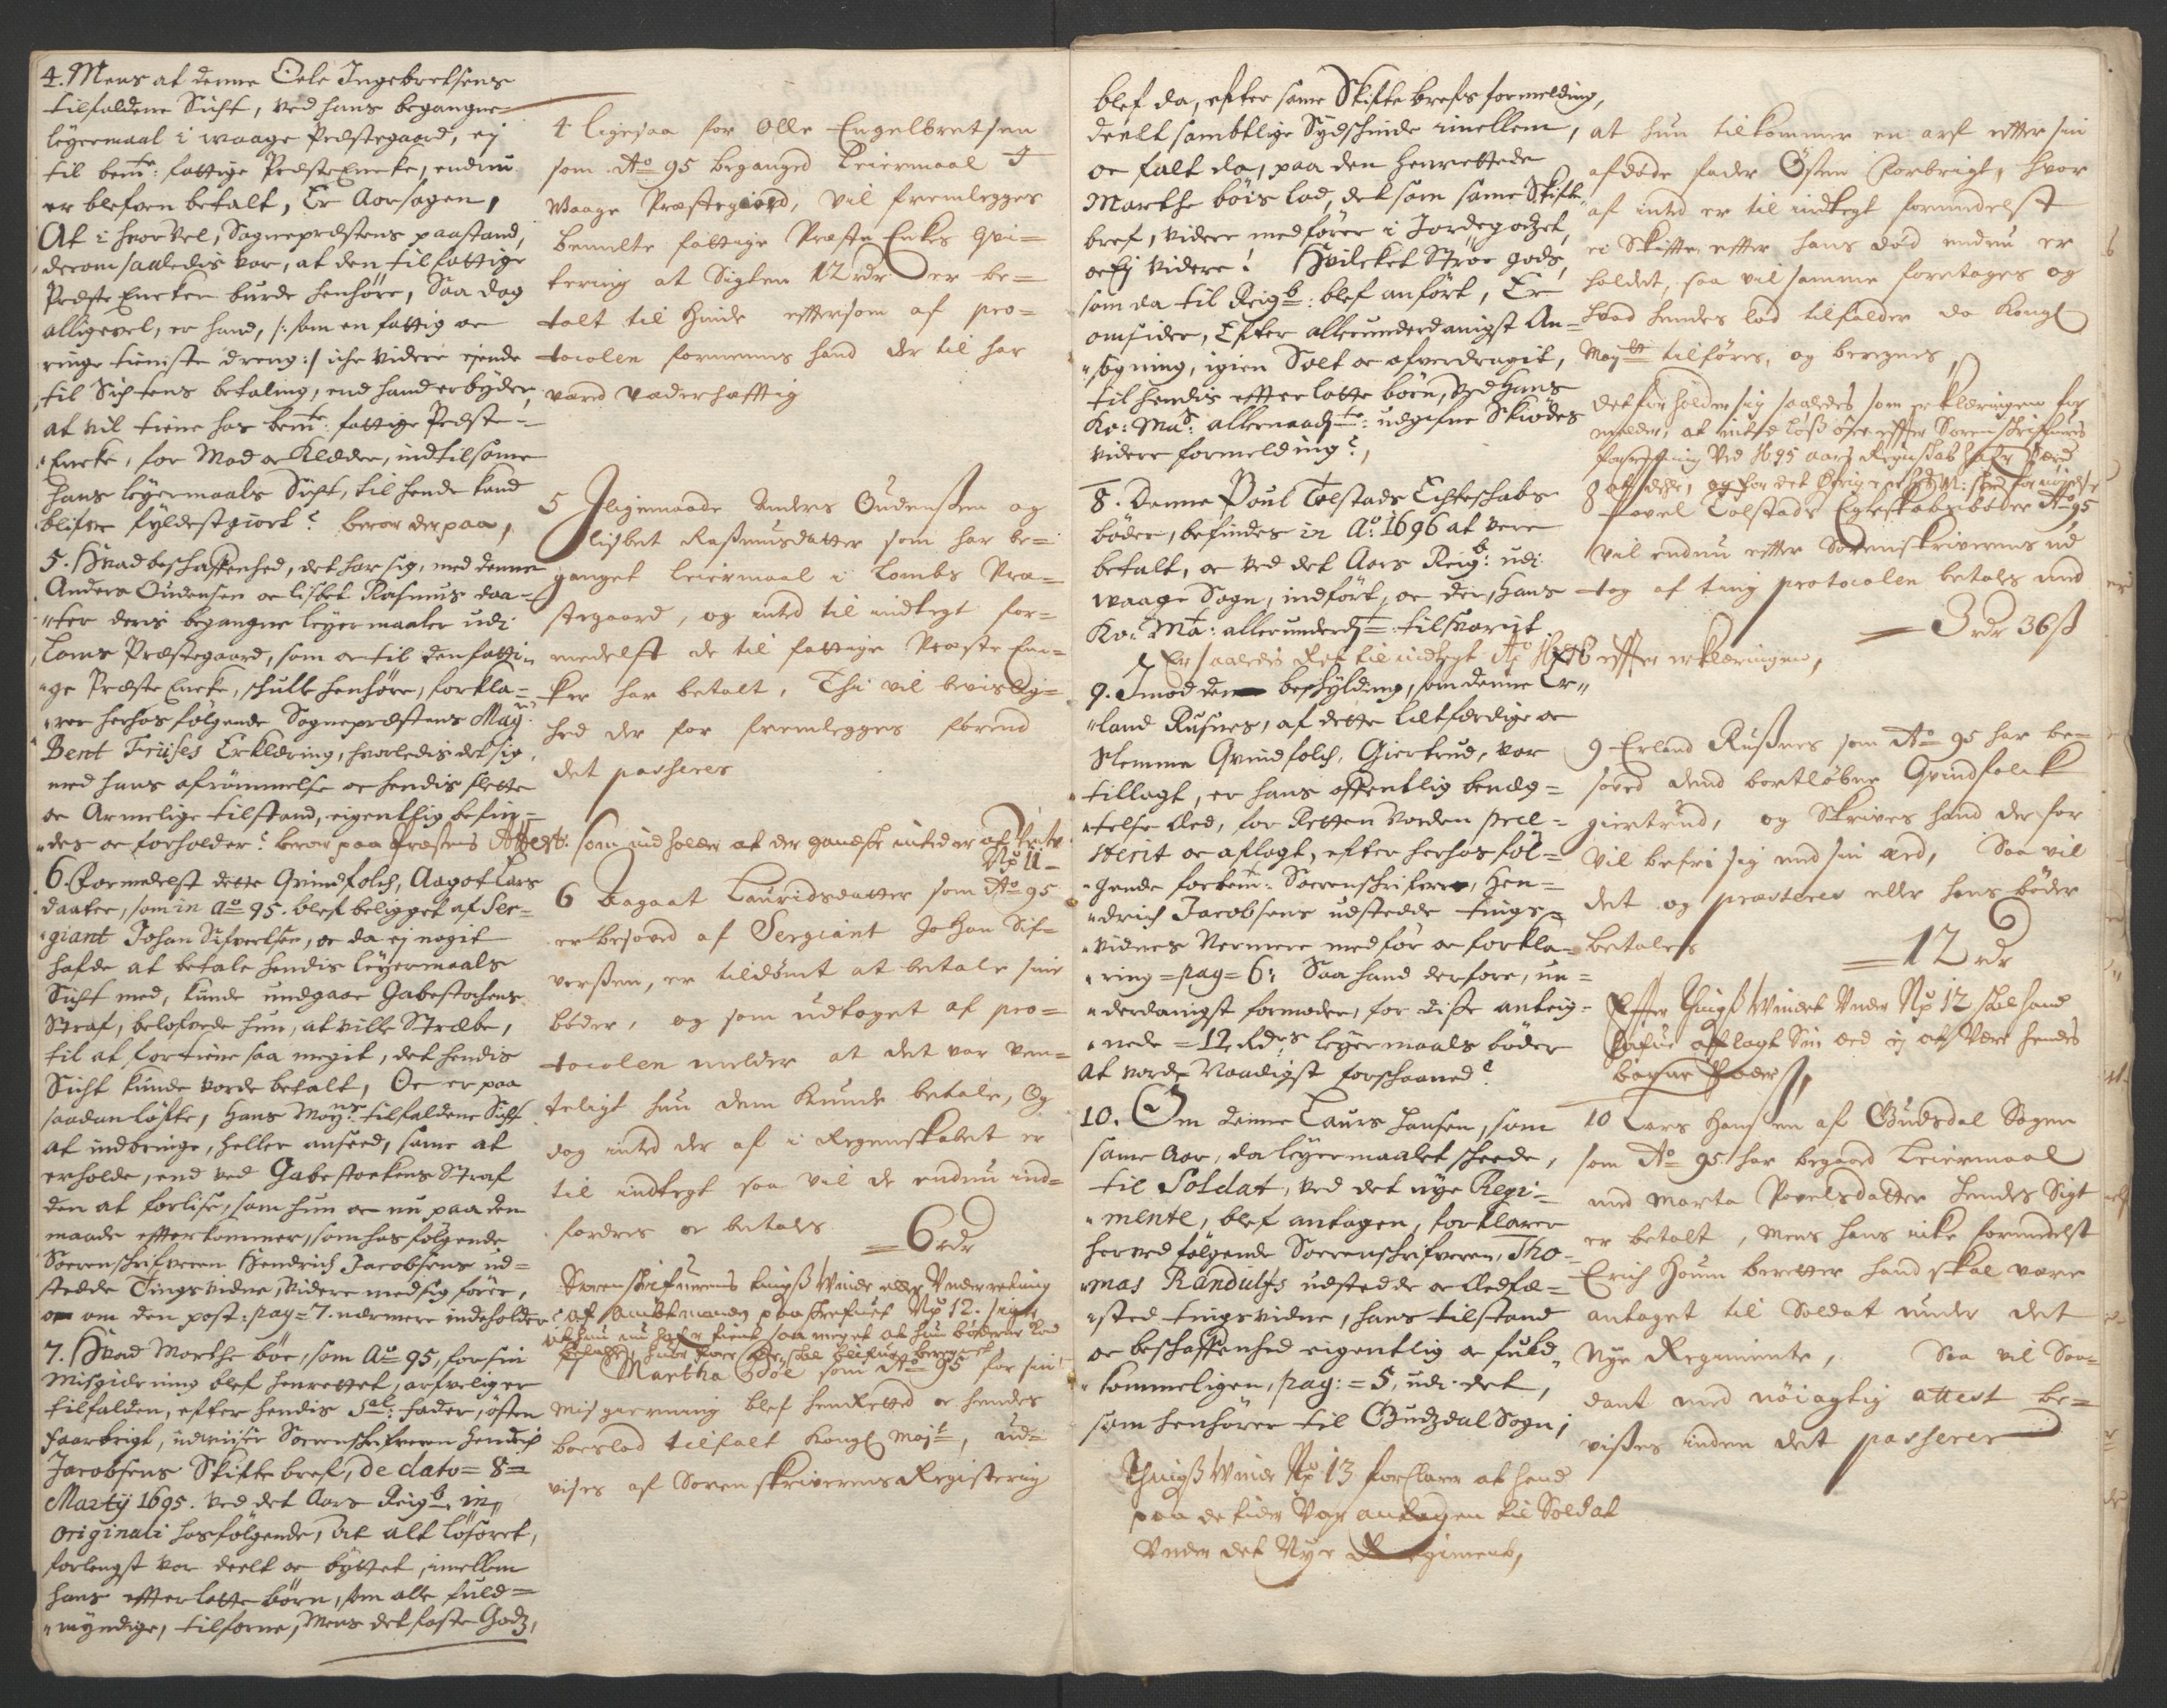 4. Mens at denne Oele Ingebretsens
tilfaldene Sicht, ved hans begangne
leyermaal i Waage Præstegaard, ej
til bemte: fattige Præste Encke, endnu
er blefven betalt, Er Aarsagen,
At i hvor vel, Sognepræstens paastand,
derom saaledis var, at den til fattige
Præste Encker burde henhøre, Saa dog
alligevel, er hand, /: som en fattig oc
ringe tieniste dreng :/ iche videre ejende
til Sichtens betaling, end hand erbyder,
at vil tiene hos bemte: fattige Præste-
Encke, for Mad oc Klæder, indtil same
hans leyermaals Sicht, til hende kand
blifve fyldest giort? beror der paa,
5. Hvad beschaffenhed, det har sig, med denne
Anders Oudensen oc lisbet Rasmus daa-
ter deris begangne leyermaaler udi
Loms Præstegaard, som oc til den fatti-
ge Præste Encke, schulle henhøre, forkla-
rer herhos følgende Sognepræstens Mag:
Bent Friises Erklæring, hvorledis det sig,
med hans afrømmelse oc hendis slette
oc Armelige tilstand, eigentlig befin-
des oc forholder? beror paa Præstens Attest: som indholder at der gandske inted er af
No 11
6. Formedelst dette Qvindfolch, Aagot Lars
daater, som in Ao 95. blef beligget af Ser-
giant Johan Sifvertsen, oc da ej nogit
hafde at betale hendis leyermaals
Sicht med, kunde undgaae Gabestochens
Straf, belofvede hun, at ville Stræbe,
til at fortiene saa megit, det hendis
Sicht kunde vorde betalt, Oc er paa
saadan løfte, Hans Mayts: tilfaldene Sicht
at indbringe, heller anseed, same at
erholde, end ved Gabestockens Straf
den at forlise, som hun oc nu paa den
maade efterkommer, som hos følgende
Sorenschrifveren Hendrich Jacobsens ud-
stedde Tingsvidne, videre med sig fører,
om den post: pag= 7. nærmere indeholder
7. Hvad Marthe bøe, som Ao 95, for sin
Misgierning blef henrettet, arfvelig er
tilfalden, efter hendis Sal: fader, østen
Faarbrigt, udviiser Sorenschrifveren Hendrich
Jacobsens Skifte bref, de dato= 8=
Marty 1695. ved det Aars Reigb: in
originali hosfølgende, At alt løsøret,
forlengst var deelt oc byttet, imellem
hans efterlatte børn, som alle fuld-
myndige, tilforne, Mens det faste Godz,
4 ligesaa for Olle Engelbretsen
som Ao 95 beganged Leiermaal I
Waage Præstegierd, vil fremlegges
bemelte fattige Præste Enkes qvi-
tering at Sigten 12 rdr er be-
talt til Hinde eftersom af pro-
tocolen fornemmes hand der til har
vared vaderhafftig
5 I ligemaade Anders Oudenssen og
Lisbet Rasmusdatter som har be-
ganget leiermaal i Lombs Præ-
stegaard, og inted til indtegt for-
medelst de til fattige Præste En-
ker har betalt, Thi vil bevislig-
hed der for fremlegges forend
det passeres
6 Aagaat Lauridsdatter som Ao 95
er besoved af Sergiant Johan Sif-
versen, er tildømt at betale sine
bøder, og som udtoget af pro-
tocolen melder at det var ven-
teligt hun dem kunde betale, Og
dog inted der af i Regenskabet er
til indtegt saa vil de endnu ind-
fordres oc betales
= 6 rdr
Sorenschrifverens tingss Winde eller Underretning
af Ambtmanden paaskrefuet No 12. siger
at hun nu tient saa meget at hun bøderne kand
betale,
7 Martha Böe som Ao 95 for sin
Misgierning blef henrettet oc hendes
boeslod tilfalt Kongl Mayt, ud-
vises af Sorenskriverens Registering
blef da, efter same Skifte brefs formelding,
deelt samblige Sydschinde imellem,
oc falt da, paa den henrettede
Marthe böis lod, det som same Skifte
bref, videre medfører i Jordegodzet,
oc Ej videre! Hvilcket Strøe gods,
som da til Reigb: blef anført, Er
omsider, Efter allerunderdanigst An-
søgning, igien Solt oc ofverdragit,
til hendis efterlatte børn, ved Hans
Ko: Ma: allernaadte: udgifne Skiødes
videre formelding?
8. Denne Poul Tolstads Echteschabs
bøder, befindes in Ao: 1696 at vere
betalt, oc ved det Aars Reigb: udi
Waage Sogn, indført, oc der, Hans
Ko: Ma: allerunderdt: tilsvarit
Er saaledis ved til indtegt Ao 1696 efter erklæringen,
9. Imod den beskylding, som denne Er-
land Rusnes, af dette letfærdige oc
Slemme Qvindfolch, Giertrud, var
tillagt, er hans offentlig benæg-
telse Eed, for Retten vorden præ-
sterit oc aflagt, efter herhos føl-
gende forbemte: Sorenschrifvere, Hen-
drich Jacobsens udstedde tings-
vidnes Nermere medfør oc forkla-
ring = pag= 6: Saa hand derfore, un-
derdanigst formoder, for disse anteig-
nede = 12 Rdrs leyermaals bøder
at vorde Naadigst forschaaned?
10. Om denne Laurs Hansen, som
same Aar, da leyermaalet scheede,
til Soldat, ved det nye Regi-
mente, blef antagen, forklarer
herved følgende Sorenschrifveren, Tho-
mas Randulfs udstedde oc Eedfæ-
sted tingsvidne, hans tilstand
oc beschaffenhed eigentlig oc fuld-
kommeligen, pag: = 5, udi det,
som henhører til Gudzdal Sogn;
Thingss Winde No 13 forklarer at hand
paa de tider var antagen til Soldat
Under det Nye Regiment,
at hun tilkommer en arf efter sin
afdøde fader Østen Forbrigt, hvor
af inted er til indtegt formedelst
ei Skifte efter hans død endnu er
holdet, saa vil samme foretages og
hvad hendes lod tilfalder da Kongl
Maytt tilføres, og beregnes,
det forholder sig saaledes som erklæringen for
melder, at inted løss øre efter Sorenschrifverens
ved 1695 aars Regnskab
8 Povel Tolstads Egteskabsbøder Ao 95
vil endnu efter Sorenskriverens ud
tog af ting protocolen betales med
= 3 rdr 36 ß
9 Erland Rusnes som Ao 95 har be-
soved dend bortløbne Qvindfolck
giertrud, og Skrives hand der for
vil befri sig med sin æed, Saa vil
det og præsteres eller hans bøder
betales
= 12 rdr
Efter Thingss Windet Under No 12 skal hand
hafue aflagt Sin eed ej at være hendes
barne fader
10 Lars Hanssen af Gudsdal Sogen
som Ao 95 har begaaed Leiermaal
med Marta Povelsdatter hendes Sigt
er betalt, Mens hans icke formedelst
Erich Houm beretter hand skal være
antaget til Soldat under det
Nye Regimente, Saa vil Saa-
dant med nöiagtig attest be-
visses inden det passerer